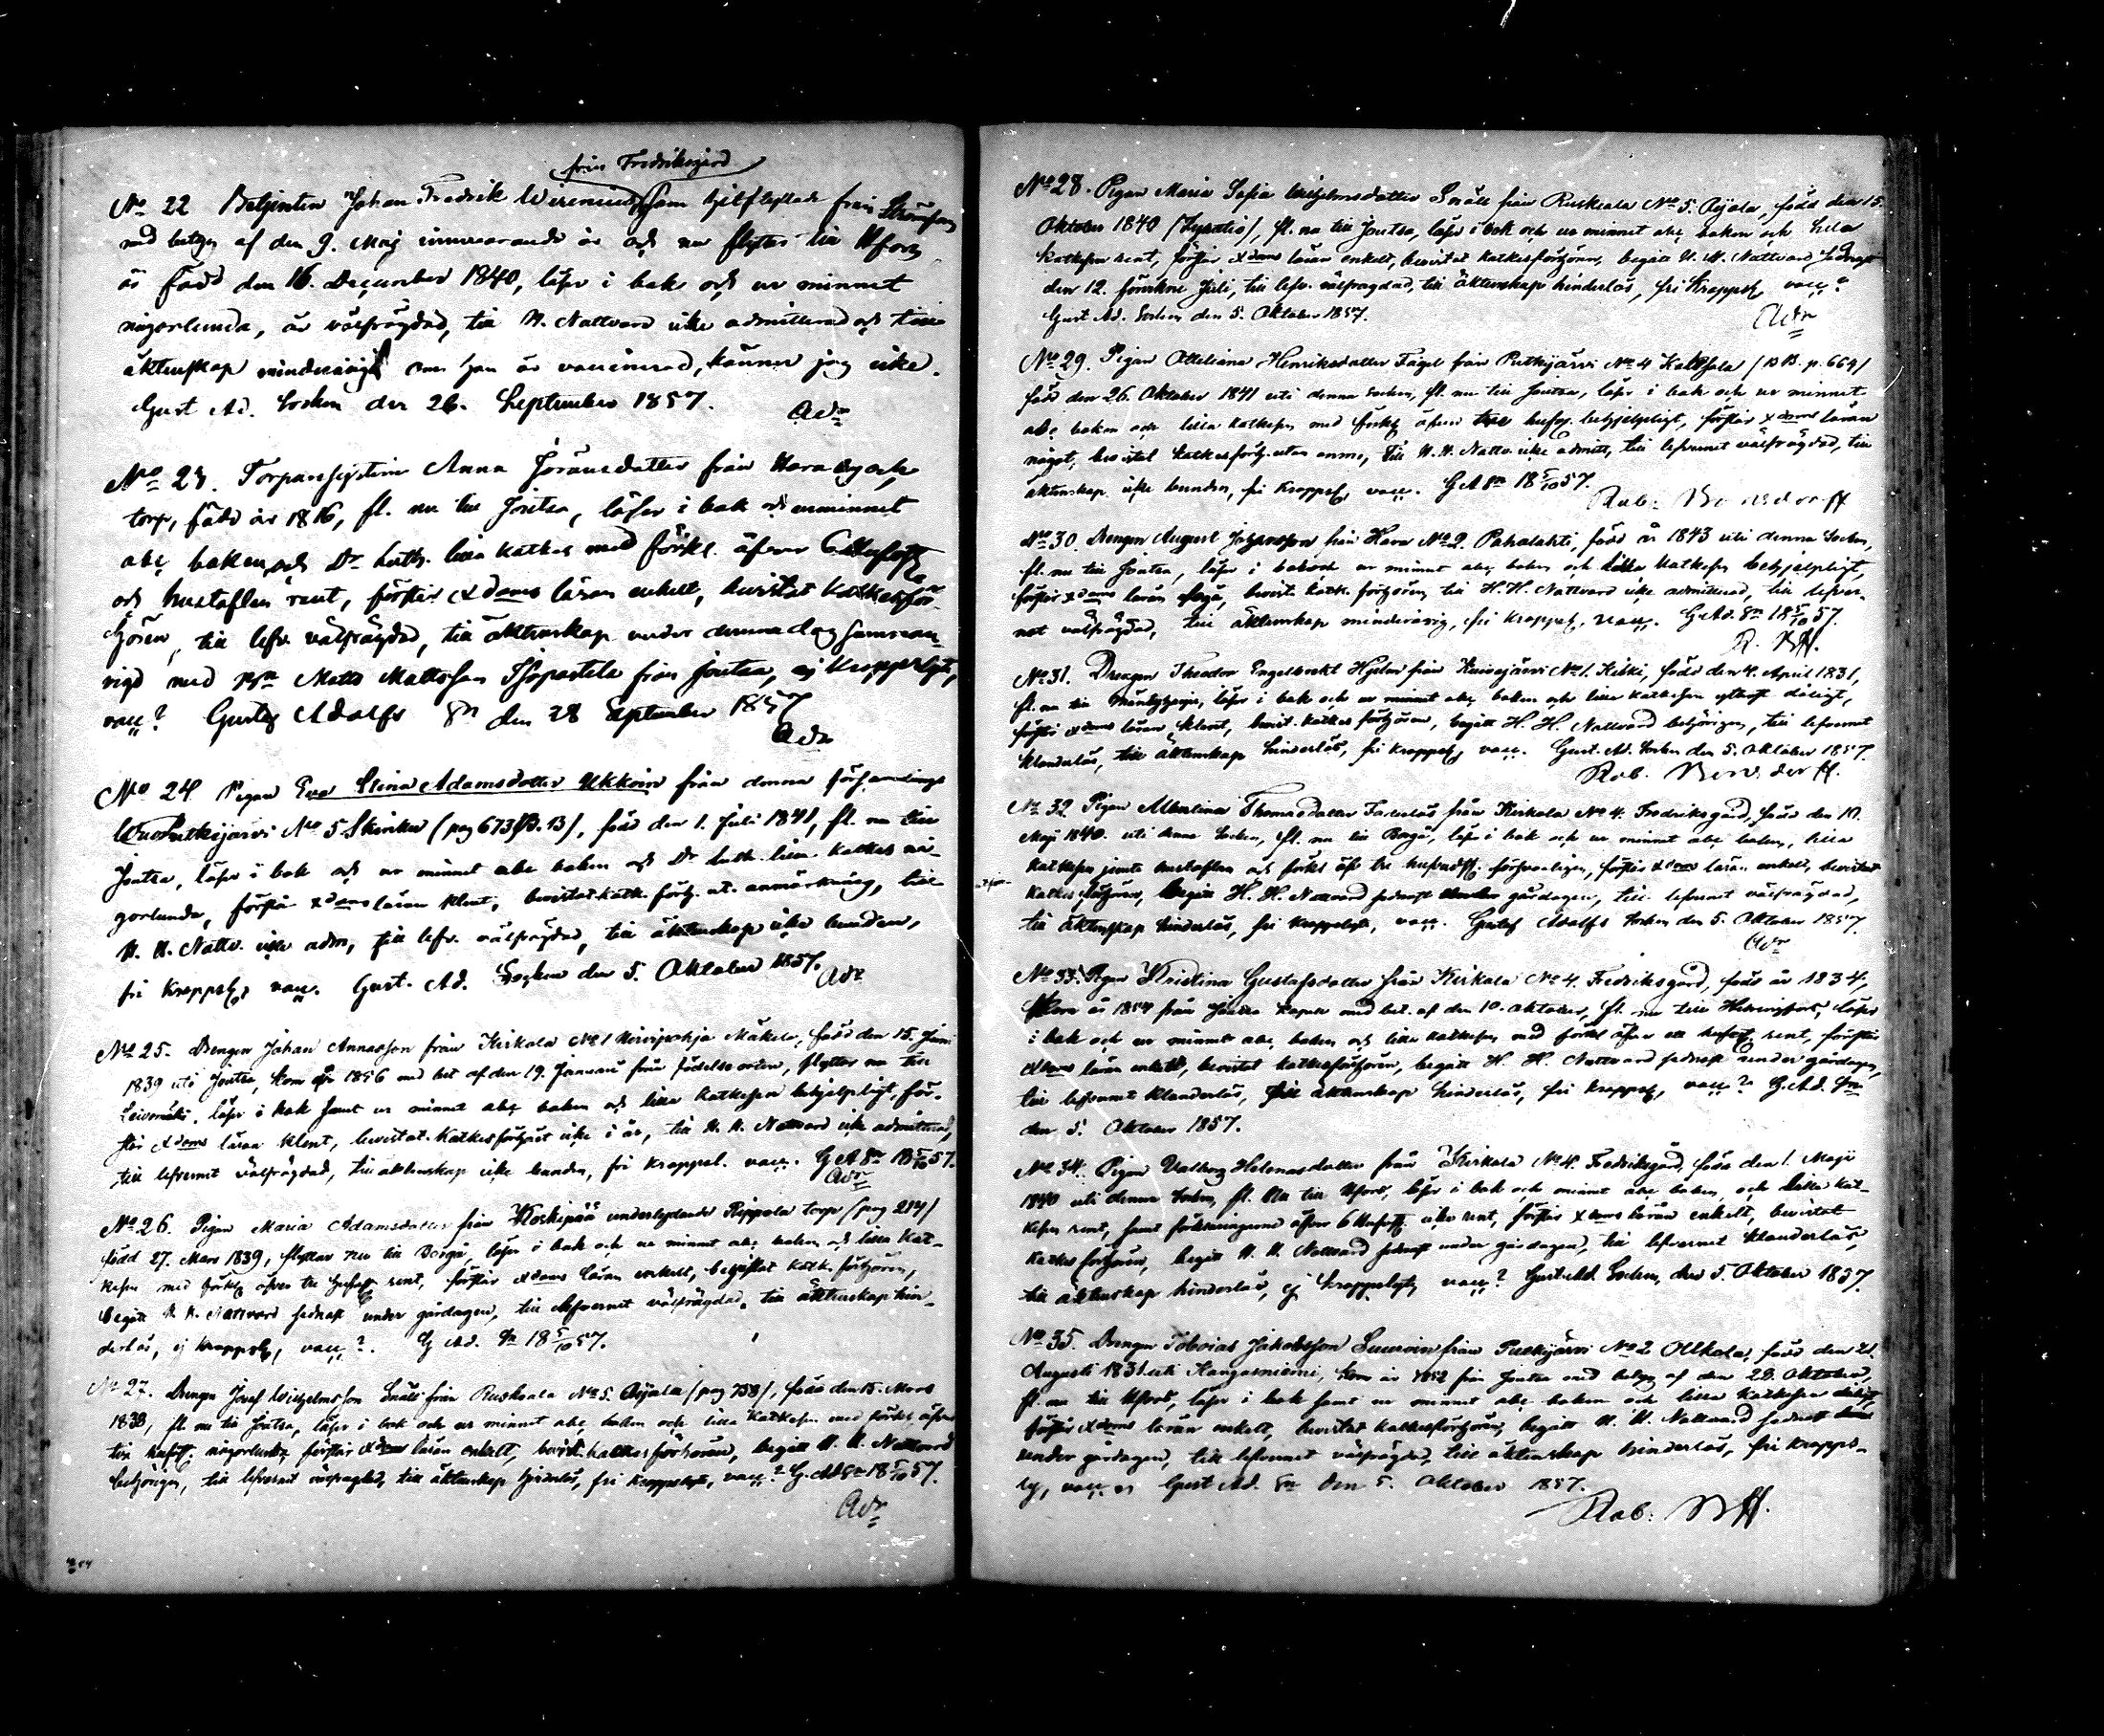 från Fredriksgård
No 22 Betjenten Johan Fredrik Wirenius, som hitflyttade från Strömfors
med betyg af den 9. Maj innevarande år och nu flyttar till Hfors
är född den 16. December 1840, läser i bok och ur minnet
någorlunda, är välfrägdad, till H. Nattvard icke admitterad och till
äktenskap minderårig, om han är vaccinerad, känner jag icke.
Gust. Ad. Socken den 26. September 1857. Adr
No 23. Torparehjstrin Anna Jöransdotter från Hara
torp, född år 1816, fl. nu till Joutsa, läser i bok och ur minnet
abc boken och Dr Luth. lilla katkes med förkl. öfver 6 Hufsty
och hustaflen rent, förstår xdoms läran enkelt, bevistat Katkesför-
hören, till lefv. välfrägdad, till äktenskap under denna dag samman
vigd med Matts Mattsson från Joutsa, ej Kroppslyt,
vacc? Gustaf Adolfs Sn den 28 September 1857
Adr
No 24 Pigan Eva Stina Adamsdotter Ukkoin från denna församlings
Puttkijärvi No 5 Skinku (pag 673 B. 13), född den 1. Juli 1841, fl. nu till
Joutsa, läser i bok och ur minnet abc boken och Dr Luth. lilla katkes nå-
gorlunda, förstår xdoms läran klent, bevistat katk. förh. ut. anmärkning, till
H. H. Nattv. icke adm, till lefv. välfrägdad, till äktenskap icke bunden,
fri Kroppsly, vacc. Gust. Ad. Socken den 5. Oktober 1857. Adr
No 25. Drengen Johan Annasson från Kirkola No 1 Mäkelä, född den 15. Juni
1839 uti Joutsa, kom år 1856 med bet af den 19. Januari från födelseorten, flyttar nu till
Leivomäki, läser i bok samt ur minnet abc boken och lilla katkesen behjelpligt, för-
står xdoms läran klent, bevistat Katkesförhöret icke i år, till H. H. Nattvard icke admitterad,
till lefvernet välfrägdad, till äktenskap icke bunden, fri Kroppsl. vacc. G A Sn 18 5/10 57.
Adr
No 26. Pigan Maria Adamsdotter från Koskipää underlydande Rippola torp (pag 214)
född 27. Mars 1839, flyttar nu till Borgå, läser i bok och ur minnet abc boken och lilla Kat-
kesen med förkl. öfver tre Hufsty rent, förstår xdoms läran enkelt, bevistat katk. förhören,
begått H. H. Nattvard sednast under gårdagen, till lefvernet välfrägdad, till äktenskap hin-
derlös, ej Kroppsly, vacc?. G Ad. Sn 18 5/10 57.
No 27. Drengen Josef Wilhelmsson Snäll från Ruskeala No 5. Arjala (pag 758), född den 15. Mars
1838, fl. nu till Joutsa, läser i bok och ur minnet abc boken och lilla Katkesen med förkl. öfver
tre hufsty. någorlunda, förstår xdoms läran enkelt, bevist. katkesförhören, begått H. H. Nattvard
behörigen, till lefvernet välfrägdad, till äktenskap hinderlös, fri Kroppslyte, vacc? G. Ad Sn 18 5/10 57.
Adr
No 28. Pigan Maria Sofia Wilhelmsdotter Snäll från Ruskeala No 5. Arjala, född den 15.
Oktober 1840, fl. nu till Joutsa, läser i bok och ur minnet abc boken och hela
katkesen rent, förstår xdoms läran enkelt, bevistat katkesförhören, begått H. H. Nattvard sednast
den 12. förutkne Juli, till lefv. välfrägdad, till äktenskap hinderlös, fri Kroppsly, vacc?
Gust. Ad. Socken den 5. Oktober 1857. Adr
No 29. Pigan Ottiliana Henriksdotter Fagel från Puttkijärvi No 4 (p. 664)
född den 26. Oktober 1841 uti denna Socken, fl. nu till Joutsa, läser i bok och ur minnet
abc boken och lilla katkesen med förkl. öfver tre hufsty. behjelpligt, förstår xdoms läran
något, bevistat katkesförh. utan anm., till H. H. Nattv. icke admitt, till lefvernet välfrägdad, till
äktenskap icke bunden, fri Kroppsly, vacc. G A Sn 18 5/10 57.
Rob. Bonsdorff
No 30. Drengen August Johansson från Hara No 2. Pahalahti, född år 1843 uti denna Socken,
fl. nu till Joutsa, läser i bok och ur minnet abc boken och lilla katkesen behjelpligt,
förstår xdoms läran föga, bevist. katk. förhören, till H. H. Nattvard icke admitterad, till lefver-
net välfrägdad, till äktenskap minderårig, fri Kroppsly, vacc. G. Ad. Sn 18 5/10 57.
R. Bff.
No 31. Drengen Theodor Engelbrekt Hjelm från No 1. född den 4. April 1831,
fl. nu till Mäntyharju, läser i bok och ur minnet abc boken och lilla katkesen ytterst dåligt,
förstår xdoms läran klent, bevist. katkesförhören, begått H. H. Nattvard behörigen, till lefvernet
klanderlös, till äktenskap hinderlös, fri Kroppsly, vacc. Gust. Ad. Socken den 5. Oktober 1857.
Rob. Bonsdorff.
No 32 Pigan Albertina Thomasdotter från Kirkola No 4. Fredriksgård, född den 10.
Maji 1840. uti denna Socken, fl. nu till Borgå, läser i bok och ur minnet abc boken, lilla
katkesen jemte hustaflan och förkl. öfv tre hufvudst. försvarligen, förstår xdoms läran enkelt, bevistat
katkesförhören, begått H. H. Nattvard sednast under gårdagen, till lefvernet välfrägdad,
till äktenskap hinderlös, fri Kroppslyte, vacc. Gustaf Adolfs Socken den 5. Oktober 1857.
Adr
No 33. Pigan Kristina Gustafsdotter från Kirkola No 4. Fredriksgård, född år 1834,
kom år 1854 från Joutsa Kapell med bet. af den 10. oktober, fl. nu till Helsingfors, läser
i bok och ur minnet abc boken och lilla katkesen med förkl öfver ett hufsty. rent, förstår
xdoms läran enkelt, bevistat katkesförhören, begått H. H. Nattvard sednast under gårdagen,
till lefvernet klanderlös, till äktenskap hinderlös, fri Kroppsly, vacc? G. Ad. Sn
den 5. Oktober 1857.
No 34. Pigan Valborg Helenasdotter från Kirkola No 4. Fredriksgård, född den 1. Maji
1840 uti denna Socken, fl. nu till Hfors, läser i bok och minnet abc boken, och lilla kat-
kesen rent, samt förklaringarne öfver 6 Hufsty. icke rent, förstår xdoms läran enkelt, bevistat
katkesförhören, begått H. H. Nattvard sednast under gårdagen, till lefvernet klanderlös,
till äktenskap hinderlös, ej Kroppslyte, vacc? Gust. Ad. Socken, den 5. Oktober 1857.
No 35. Drengen Tobias Jakobsson Suuroin från Puttkijärvi No 2 Ollkala, född den 21.
Augusti 1831 uti Kangasniemi, kom år 1852 från Joutsa med betyg af den 20. Oktober,
fl. nu till Hfors, läser i bok samt ur minnet abc boken och lilla katkesen dåligt,
förstår xdoms läran enkelt, bevistat katkesförhören, begått H. H. Nattvard sednast
under gårdagen, till lefvernet välfrägdad, till äktenskap hinderlös, fri Kropps-
ly, vacc. Gust Ad. Sn den 5. Oktober 1857.
Rob. Bff.